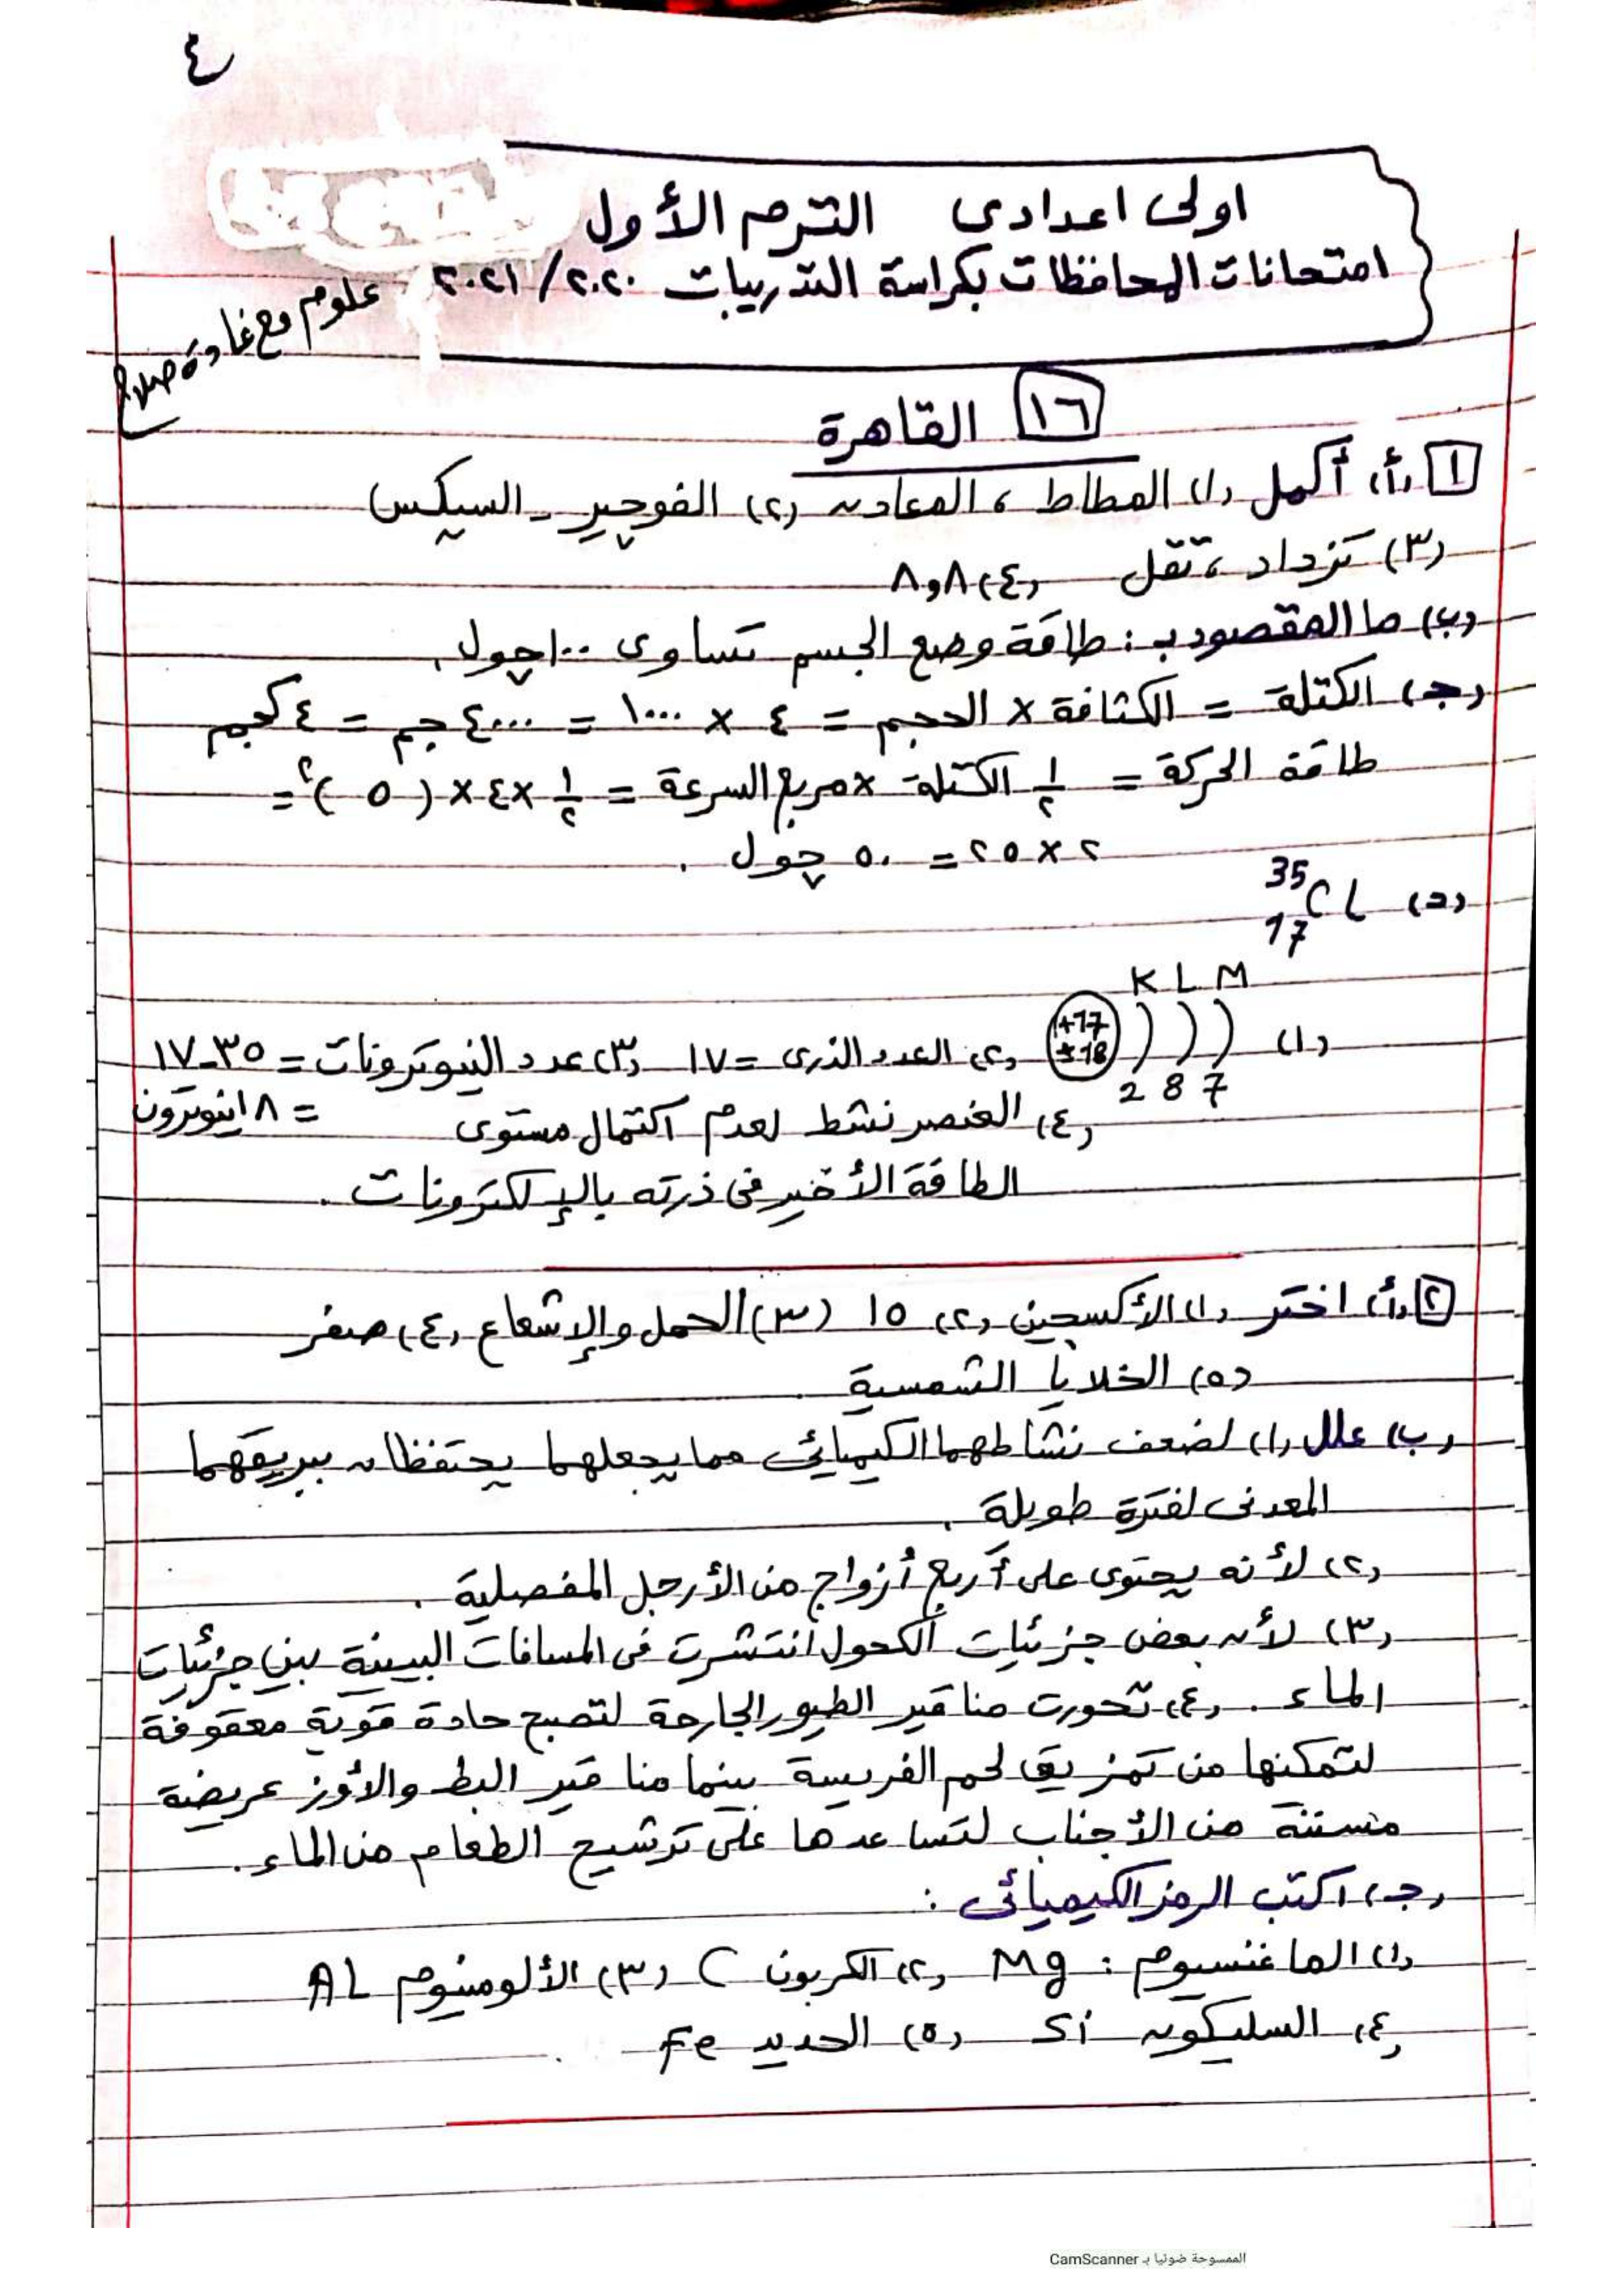 ٤
اولى اعدادى الترم الأول
امتحانات المحافظات بكراسة التدريبات ٢٠٢٠/٢٠٢١
علوم مع غادة صلاح
١٦ القاهرة
١ (أ) أكمل (١) المطاط ، المعادن (٢) الفوجير - السيكس
(٣) تزداد ، تقل (٤) ٨و٨
(ب) ما المقصود بـ : طاقة وضع الجسم تساوى ١٠٠ چول .
(جـ) الكتلة = الكثافة × الحجم = ٤ × ١٠٠٠ = ٤٠٠٠ جم = ٤ كجم
طاقة الحركة = ١/٢ الكتلة × مربع السرعة = ١/٢ × ٤ × (٥)٢ =
٢ × ٢٥ = ٥٠ چول .
(د) 35 17 Cl
K L M
(١) +17 ±18 ) ) ) (٢) العدد الذرى = ١٧ (٣) عدد النيوترونات = ٣٥-١٧
2 8 7 = ١٨ نيوترون
(٤) العنصر نشط لعدم اكتمال مستوى
الطاقة الأخير فى ذرته بالإلكترونات .
٢ (أ) اختر (١) الأكسجين (٢) ١٥ (٣) الحمل والإشعاع (٤) صفر
(٥) الخلايا الشمسية
(ب) علل (١) لضعف نشاطهما الكيميائى مما يجعلهما يحتفظان ببريقهما
المعدنى لفترة طويلة .
(٢) لأنه يحتوى على أربع أزواج من الأرجل المفصلية .
(٣) لأن بعض جزئيات الكحول انتشرت فى المسافات البينية بين جزئيات
الماء . (٤) تحورت مناقير الطيور الجارحة لتصبح حادة قوية معقوفة
لتمكنها من تمزيق لحم الفريسة بينما مناقير البط والأوز عريضة
مسننة من الأجناب لتساعدها على ترشيح الطعام من الماء .
(جـ) اكتب الرمز الكيميائى :
(١) الماغنسيوم : Mg (٢) الكربون C (٣) الألومنيوم AL
(٤) السليكون Si (٥) الحديد Fe
الممسوحة ضوئيا بـ CamScanner